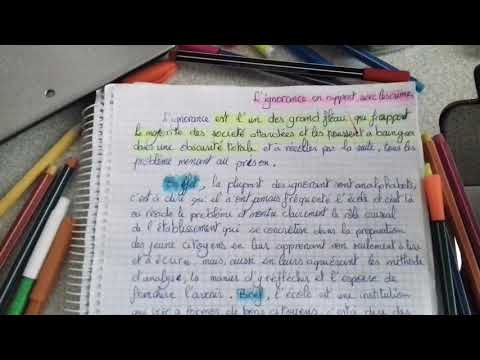 L'ignorance en rapport avec les crime
L'ignorance est l'un des grand fléau qui frappent
la majorité des société attardées et les poussent à baingner
dans une obscurité totale et à récoltés par la suite, tous les
problème menant au présen.
En effet, la plupart des ignorant sont analphabets,
c'est à dire qu'il n'ont jamais fréquenté l'école et c'est là
ou réside le problème et montre clairement le rôle causal
de l'établissement qui se concrétise dans la préparation
des jeune citoyens en leur apprenant non seulement à lire
et à écure, mais aussi en leurs aquérant les méthode
d'analyse, la manier d'y réfléchir et l'espoire de
franchire l'avenir. Bref, l'école est une institution
qui vise à former de bons citoyens, c'est à dire des